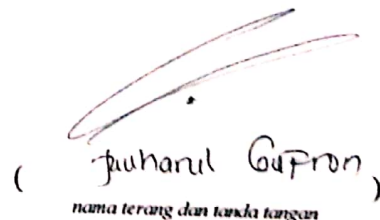 ( Jauharul Gufron )
nama terang dan tanda tangan